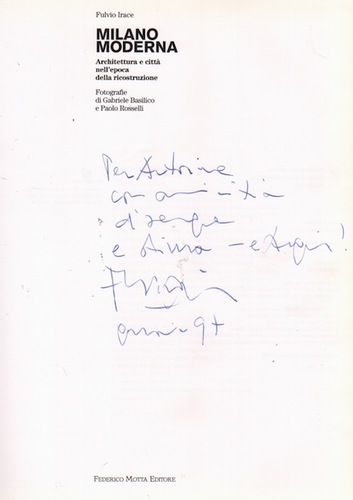 Fulvio Irace
MILANO
MODERNA
Architettura e città
nell'epoca
della ricostruzione
Fotografie
di Gabriele Basilico
e Paolo Rosselli
Per
con amicizia
di sempre
e stima – e
FEDERICO MOTTA EDITORE